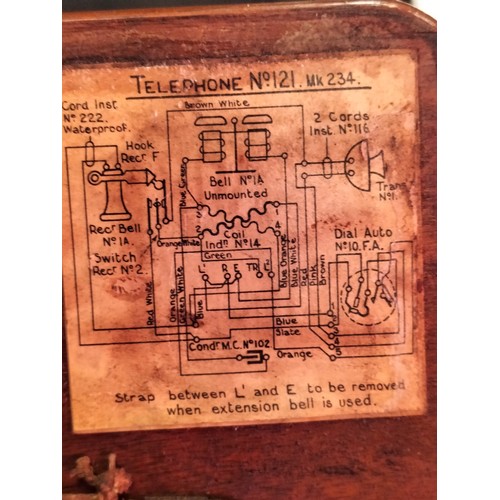 TELEPHONE No121. MK 234.
Brown White
Cord Inst
No 222.
Waterproof.
2 Cords
Inst. No 116.
Hook
Recr F
Bell No 1A
Unmounted
Trans
No 1.
Blue Green
Recr Bell
No 1A.
Switch
Recr No 2.
Orange White
Coil
Indn No 14
Green
Dial Auto
No 10. F.A.
L' R E TR
Red White
Orange
Green White
Blue
Blue Orange
Blue White
Red
Pink
Brown
Blue
Slate
Condr M.C. No 102
Orange
Strap between L' and E to be removed
when extension bell is used.